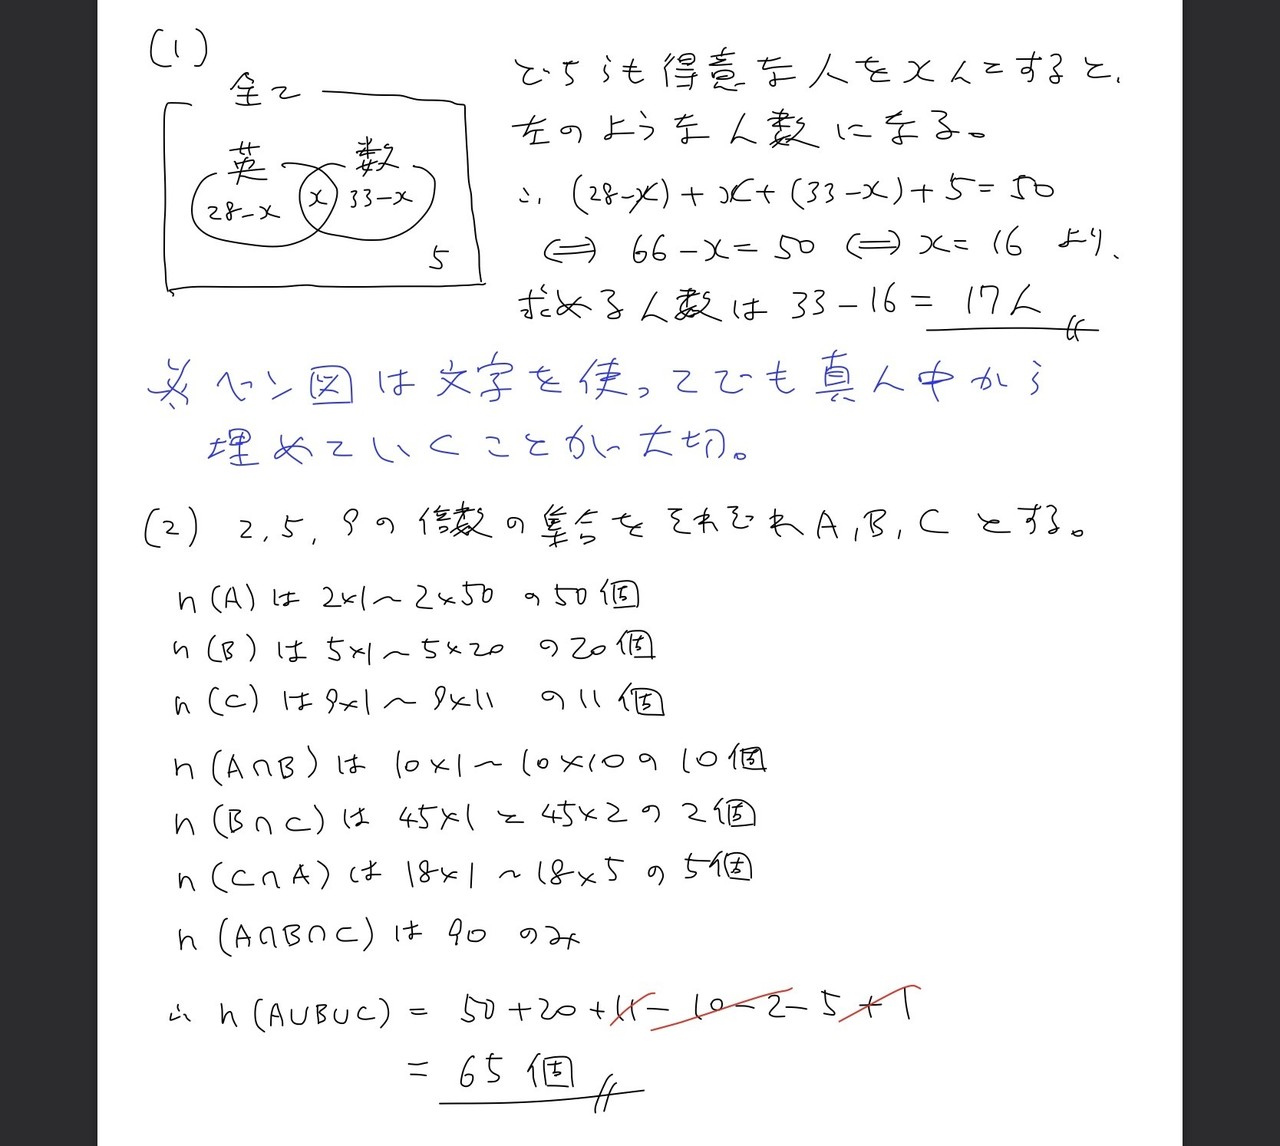 (1)
全て
英
数
28-x
x
33-x
5
どちらも得意な人をx人とすると、
左のような人数になる。
∴ (28-x)+x+(33-x)+5=50
⇔ 66-x=50 ⇔ x=16 より、
求める人数は 33-16= 17人
※ ベン図は文字を使ってでも真ん中から
埋めていくことが大切。
(2) 2, 5, 9の倍数の集合をそれぞれA, B, Cとする。
n(A)は 2×1〜2×50 の50個
n(B)は 5×1〜5×20 の20個
n(C)は 9×1〜9×11 の11個
n(A∩B)は 10×1〜10×10の10個
n(B∩C)は 45×1と45×2の2個
n(C∩A)は 18×1〜18×5の5個
n(A∩B∩C)は 90 のみ
∴ n(A∪B∪C) = 50+20+11-10-2-5+1
= 65個